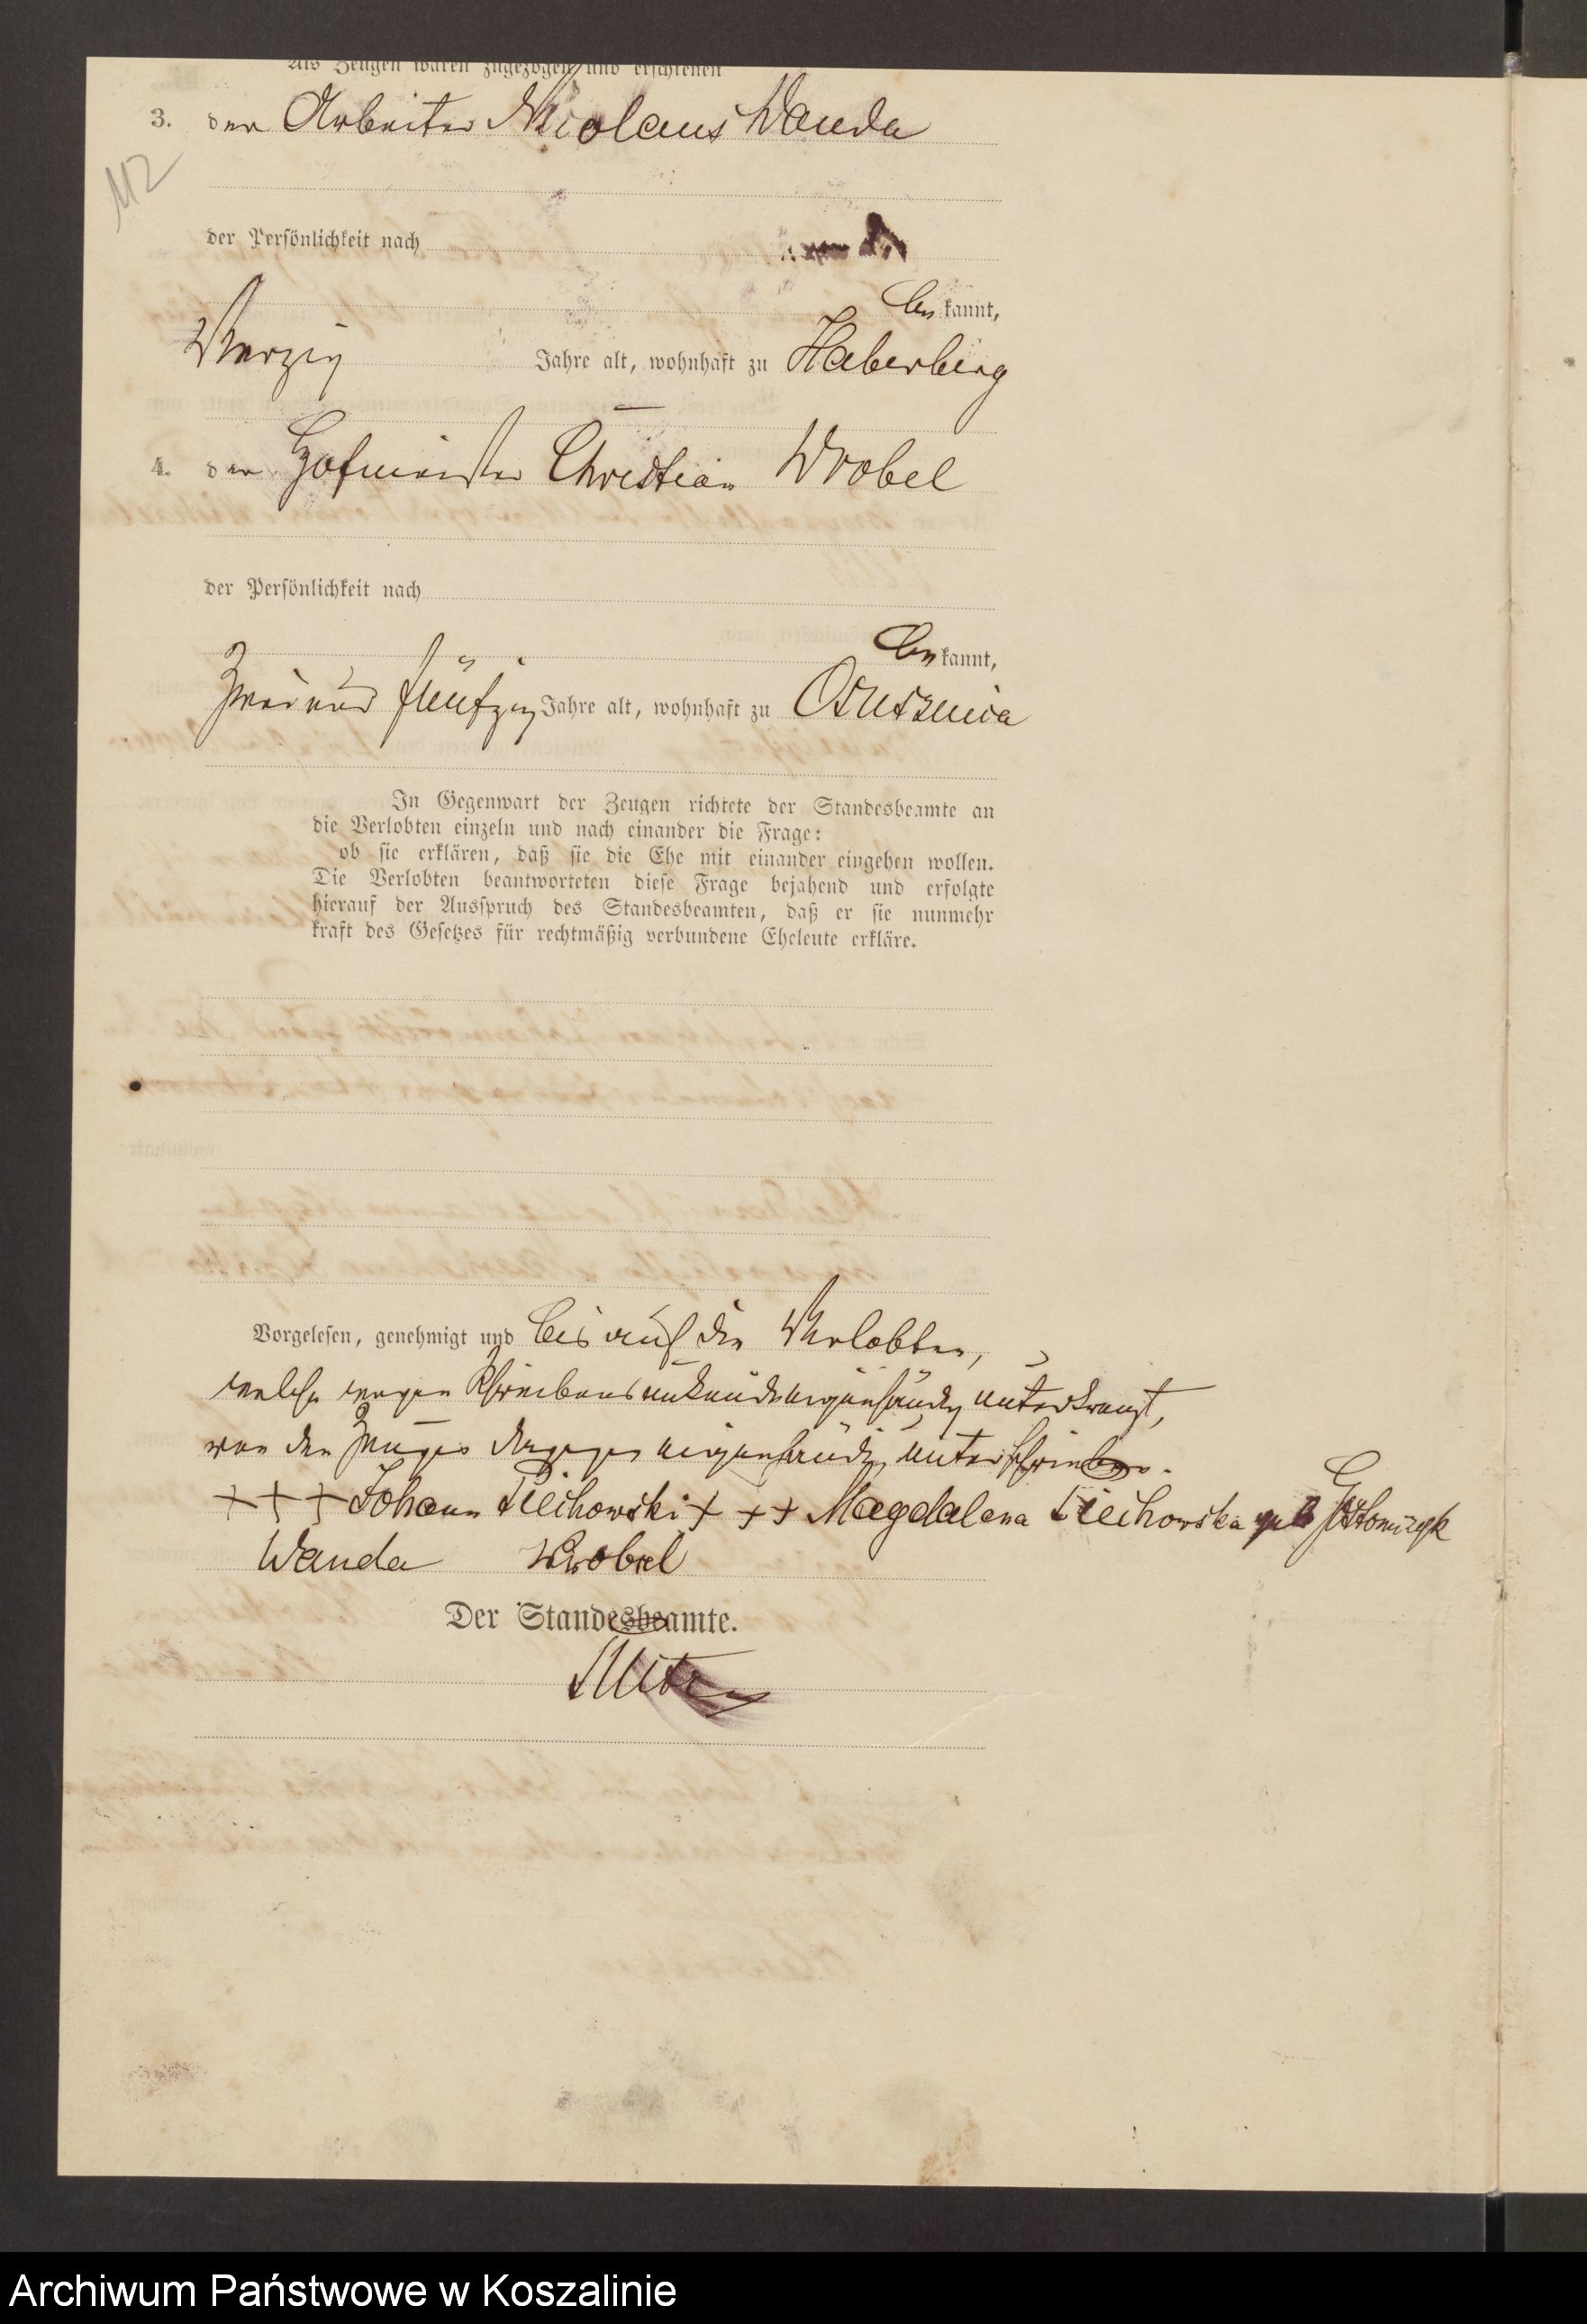 Als Zeugen waren zugezogen und erschienen
3. der Arbeiter Nicolaus Wanda
112
der Persönlichkeit nach
bekannt,
Vierzig Jahre alt, wohnhaft zu Haberberg
4. der Hofmeister Christian Wrobel
der Persönlichkeit nach
bekannt,
Zwei und fünfzig Jahre alt, wohnhaft zu Ossusznica
In Gegenwart der Zeugen richtete der Standesbeamte an
die Verlobten einzeln und nach einander die Frage:
ob sie erklären, daß sie die Ehe mit einander eingehen wollen.
Die Verlobten beantworteten diese Frage bejahend und erfolgte
hierauf der Ausspruch des Standesbeamten, daß er sie nunmehr
kraft des Gesetzes für rechtmäßig verbundene Eheleute erkläre.
Vorgelesen, genehmigt und bis auf die Verlobten,
welche wegen Schreibensunkunde eigenhändig unterkreuzt,
von den Zeugen dagegen eigenhändig unterschrieben.
+ + + Johann Piechowski + + + Magdalena Piechowska geb
Wanda Wrobel
Der Standesbeamte.
Archiwum Państwowe w Koszalinie